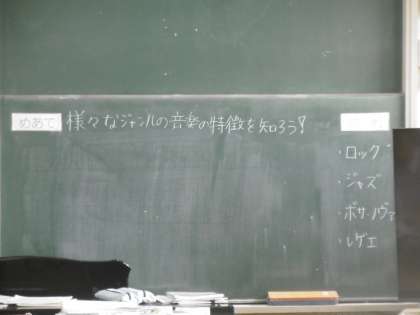 めあて 様々なジャンルの音楽の特徴を知ろう!
・ロック
・ジャズ
・ボサ・ノヴァ
・レゲエ